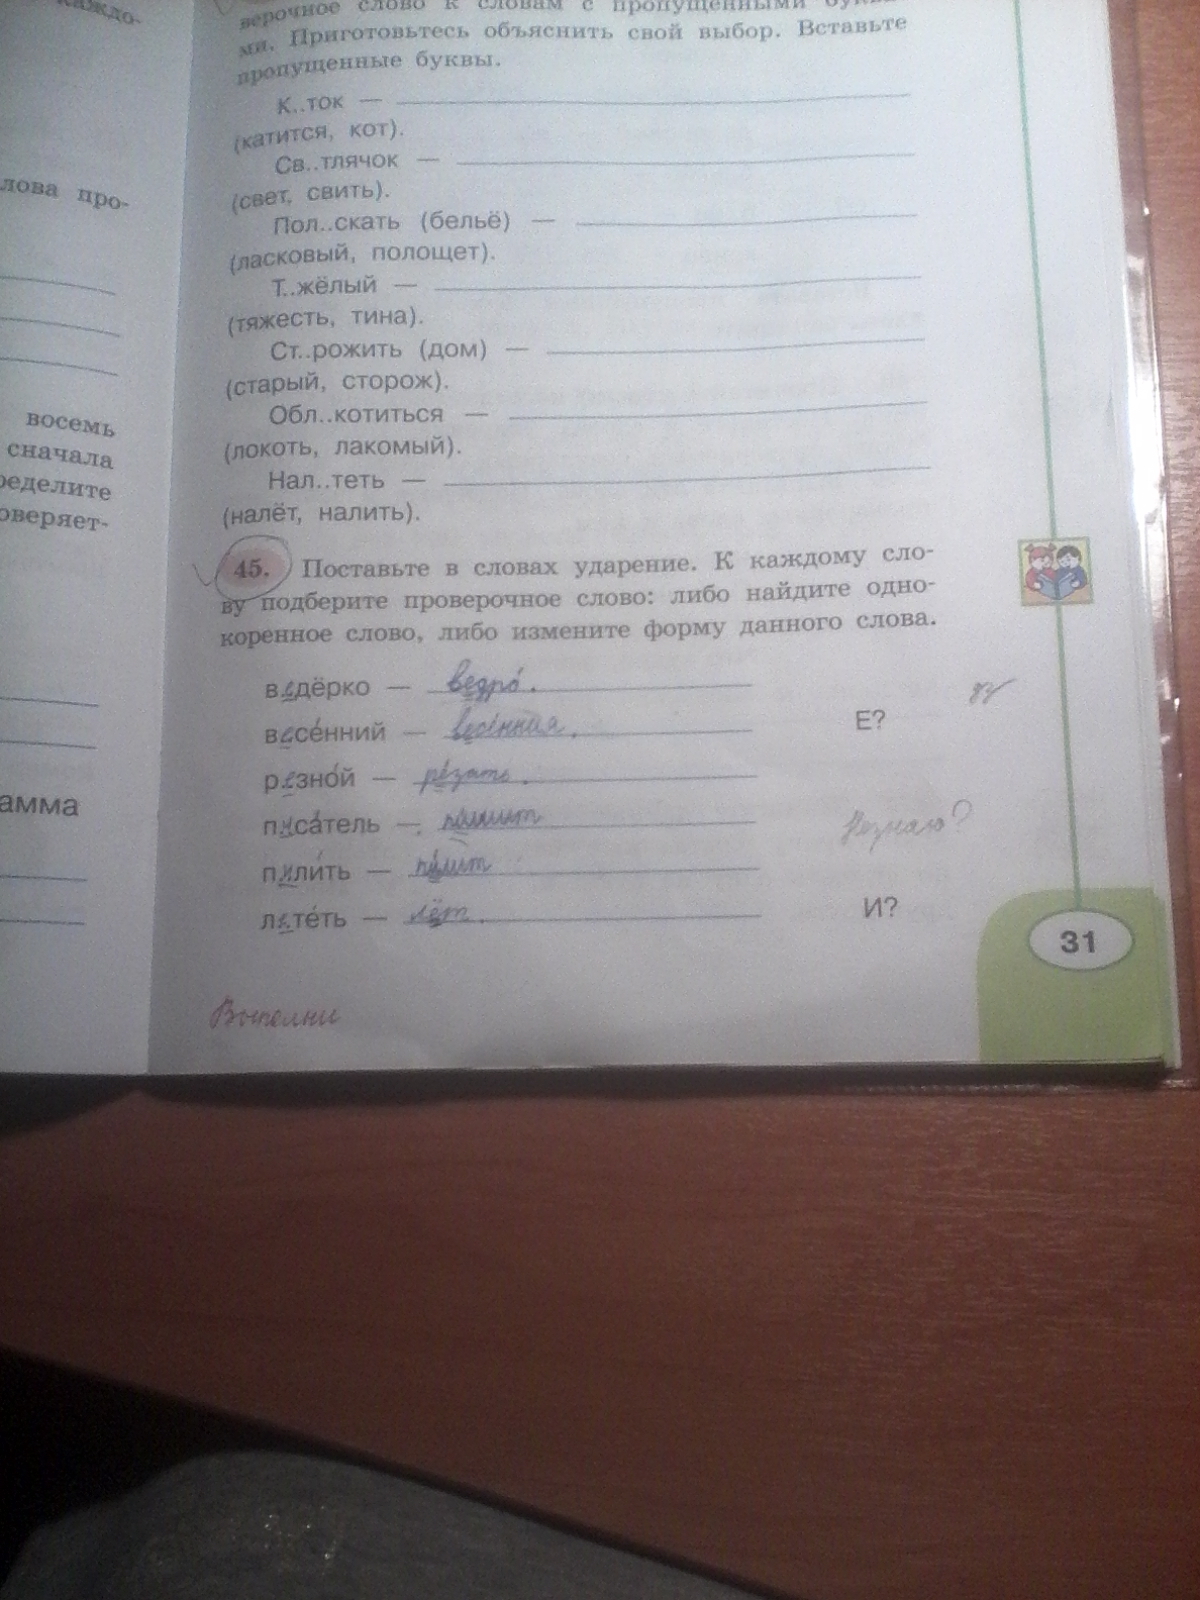 каждо-
верочное слово к словам с пропущенными буква-
ми. Приготовьтесь объяснить свой выбор. Вставьте
пропущенные буквы.
К..ток —
(катится, кот).
Св..тлячок —
(свет, свить).
Пол..скать (бельё) —
(ласковый, полощет).
Т..жёлый —
(тяжесть, тина).
Ст..рожить (дом) —
(старый, сторож).
Обл..котиться —
(локоть, лакомый).
Нал..теть —
(налёт, налить).
лова про-
восемь
сначала
ределите
оверяет-
амма
45. Поставьте в словах ударение. К каждому сло-
ву подберите проверочное слово: либо найдите одно-
коренное слово, либо измените форму данного слова.
ведёрко — ведро́.
весе́нний — весе́нния.
резно́й — ре́зать.
писа́тель — пишит
пили́ть — пи́лит
лете́ть — лёт.
Е?
Незнаю?
И?
31
Выполни